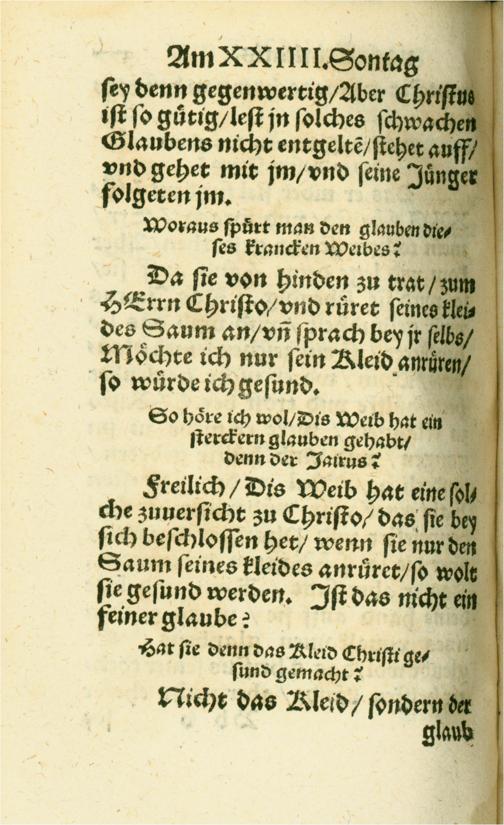 Am XXIIII. Sontag
sey denn gegenwertig/Aber Christus
ist so gütig/lest jn solches schwachen
Glaubens nicht entgeltẽ/stehet auff/
vnd gehet mit jm/vnd seine Jünger
folgeten jm.
Woraus spürt man den glauben die⸗
ses krancken Weibes?
Da sie von hinden zu trat/zum
HErrn Christo/vnd rüret seines klei⸗
des Saum an/vñ sprach bey jr selbs/
Möchte ich nur sein Kleid anrüren/
so würde ich gesund.
So höre ich wol/Dis Weib hat ein
sterckern glauben gehabt/
denn der Jairus?
Freilich/Dis Weib hat eine sol⸗
che zuuersicht zu Christo/das sie bey
sich beschlossen het/wenn sie nur den
Saum seines kleides anrüret/so wolt
sie gesund werden. Ist das nicht ein
feiner glaube?
Hat sie denn das Kleid Christi ge⸗
sund gemacht?
Nicht das Kleid/sondern der
glaub